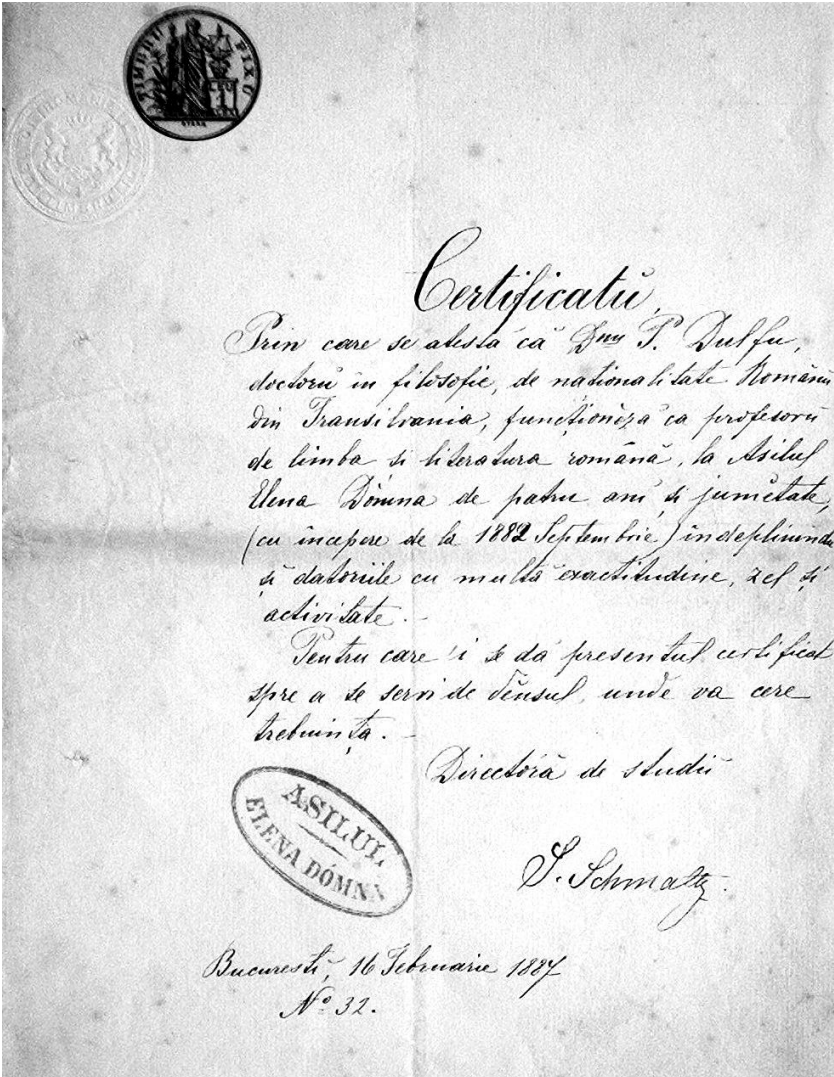 TIMBRU FIXU
LEU
1
Certificatŭ,
Prin care se atestă că Dnu P. Dulfu,
doctorŭ in filosofie, de naționalitate Românŭ
din Transilvania, funcționéza ca profesorŭ
de limba si literatura română, la Asilul
Elena Dómna de patru anĭ și jumĕtate,
(cu începere de la 1882 Septembrie) indeplinindu
și datoriile cu multă exactitudine, zel și
activitate.-
Pentru care 'i se dă presentul certificat
spre a se servi de dĕnsul, unde va cere
trebuința.-
Directóră de studiĭ
ASILUL
ELENA DÓMNA
S. Schmaltz.
Bucuresti, 16 Februarie 1887
No 32.